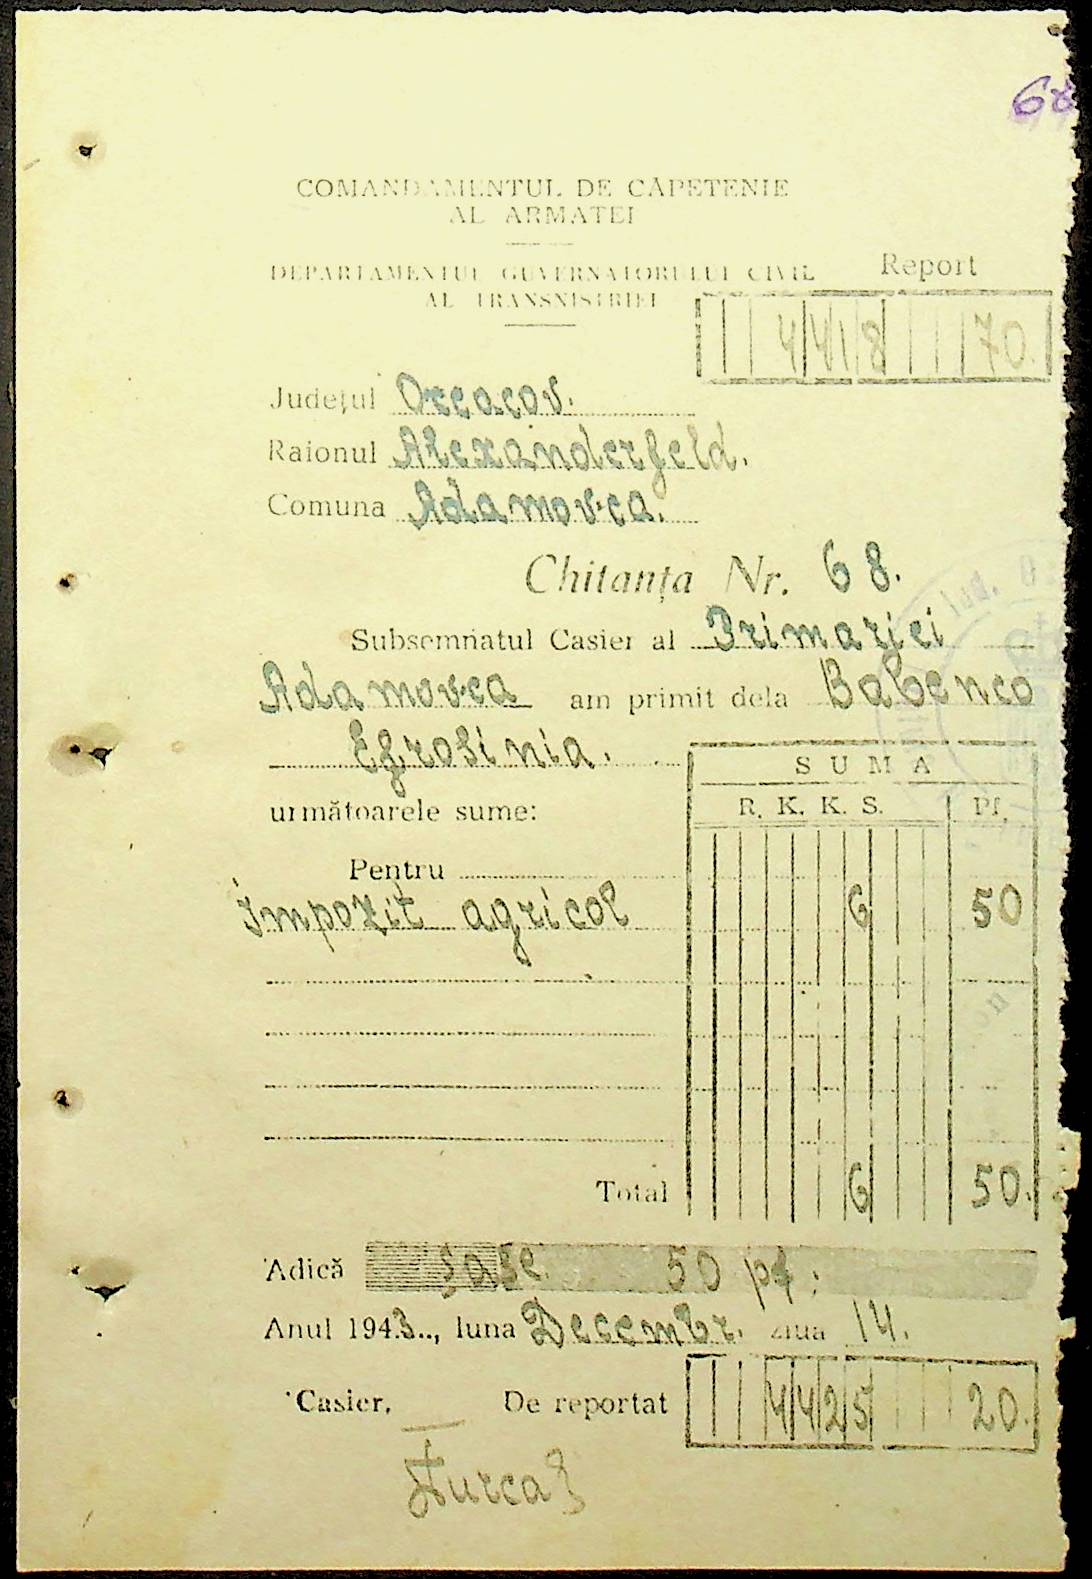 68
COMANDAMENTUL DE CĂPETENIE
AL ARMATEI
DEPARTAMENTUL GUVERNATORULUI CIVIL
AL TRANSNISTRIEI
Report
4418 70.
Județul Oceacov.
Raionul Alexanderfeld.
Comuna Adamovca.
Chitanța Nr. 68.
Subsemnatul Casier al Primariei
Adamovca am primit dela Babenco
Efrosinia.
SUMA
următoarele sume:
R. K. K. S. Pf.
Pentru
Impozit agricol 6 50
Total 6 50.
Adică șase 50 pf.
Anul 1943.., luna Decembr. ziua 14.
Casier, De reportat 4425 20.